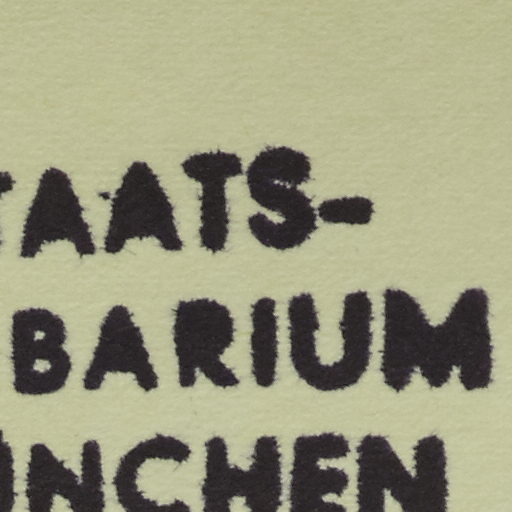 TAATS-
BARIUM
ÜNCHEN